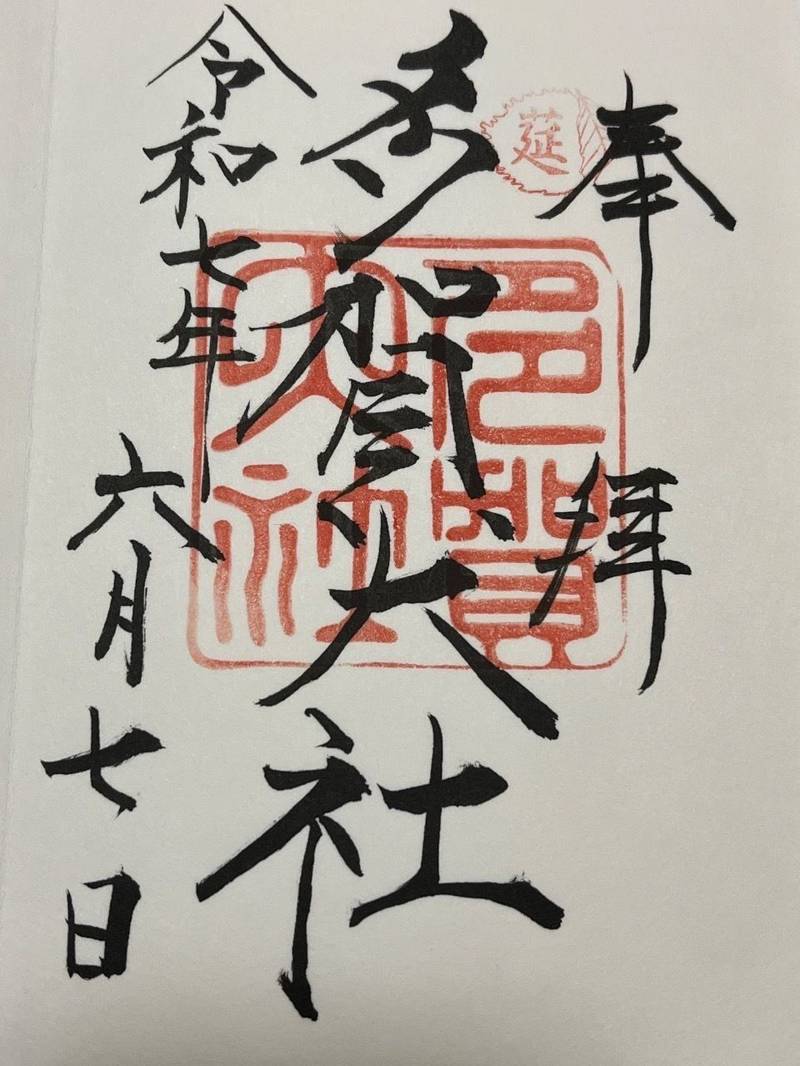 奉拝
莚
多賀大社
多賀大社
令和七年六月七日